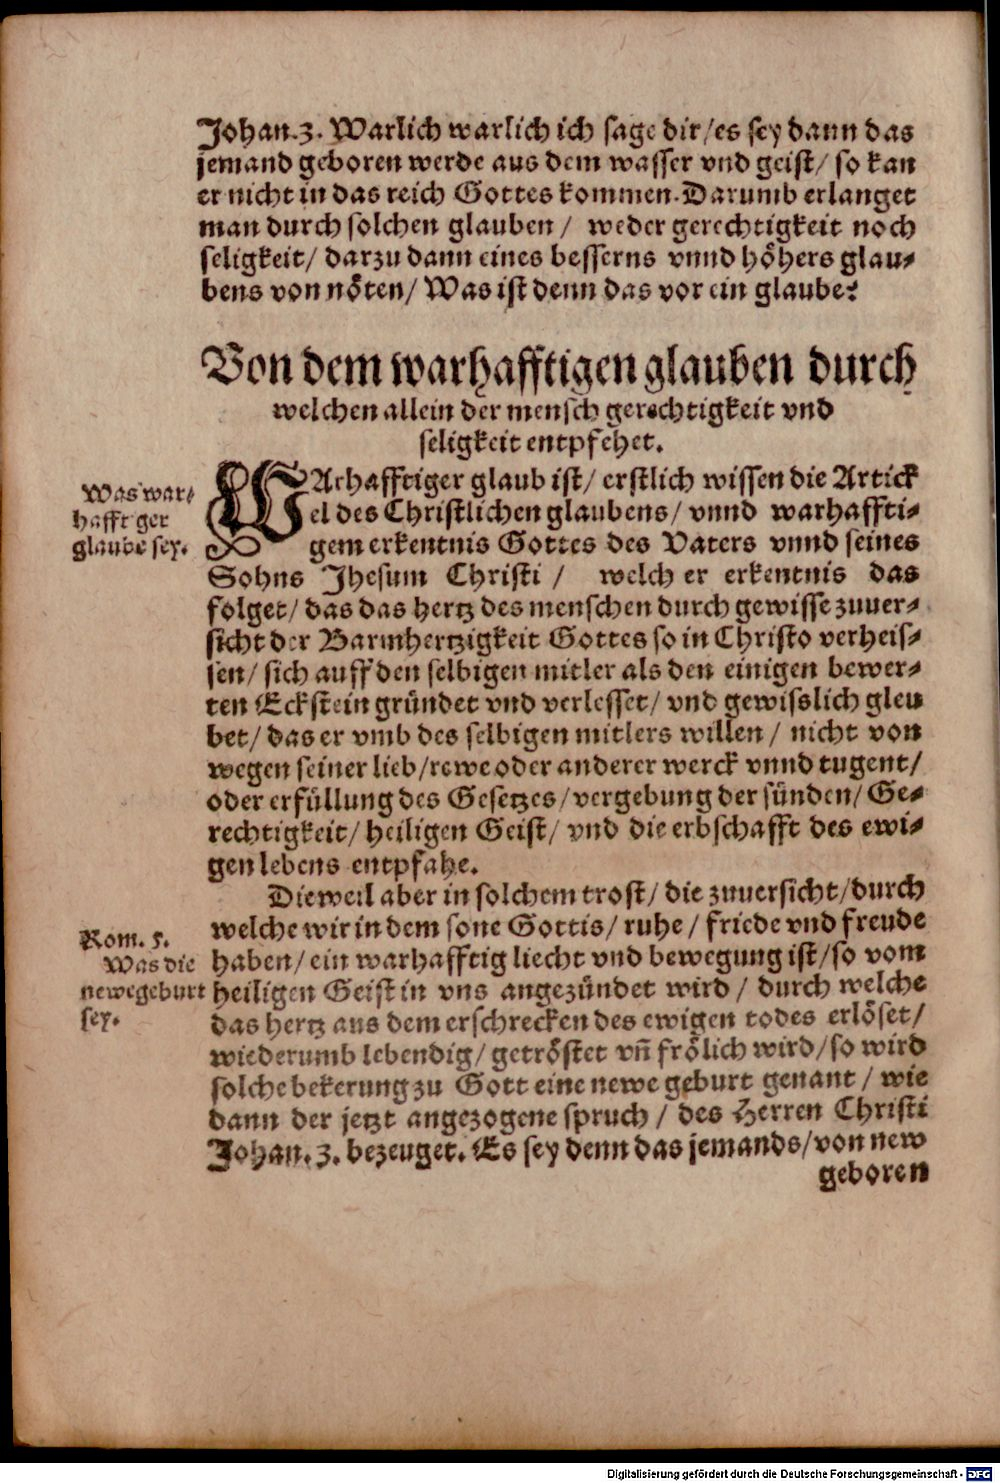 Johan.3. Warlich warlich ich sage dir/es sey dann das
jemand geboren werde aus dem wasser vnd geist/ so kan
er nicht in das reich Gottes kommen. Darumb erlanget
man durch solchen glauben / weder gerechtigkeit noch
seligkeit/ darzu dann eines besserns vnnd höhers glau-
bens von nöten/ Was ist denn das vor ein glaube?
Von dem warhafftigen glauben durch
welchen allein der mensch gerechtigkeit vnd
seligkeit entpfehet.
Was war-
hafft ger
glaube sey.
WArhafftiger glaub ist/ erstlich wissen die Artick
el des Christlichen glaubens/ vnnd warhaffti-
gem erkentnis Gottes des Vaters vnnd seines
Sohns Jhesum Christi / welch er erkentnis das
folget/ das das hertz des menschen durch gewisse zuuer-
sicht der Barmhertzigkeit Gottes so in Christo verheis-
sen/ sich auff den selbigen mitler als den einigen bewer-
ten Eckstein gründet vnd verlesset/ vnd gewisslich gleu
bet/ das er vmb des selbigen mitlers willen / nicht von
wegen seiner lieb/rewe oder anderer werck vnnd tugent/
oder erfüllung des Gesetzes/vergebung der sünden/ Ge-
rechtigkeit/ heiligen Geist/ vnd die erbschafft des ewi-
gen lebens entpfahe.
Dieweil aber in solchem trost/ die zuuersicht/durch
welche wir in dem sone Gottis/ ruhe / friede vnd freude
Rom. 5.
Was die
newegeburt
sey.
haben/ ein warhafftig liecht vnd bewegung ist/so vom
heiligen Geist in vns angezündet wird / durch welche
das hertz aus dem erschrecken des ewigen todes erlöset/
wiederumb lebendig/ getröstet vñ frölich wird/so wird
solche bekerung zu Gott eine newe geburt genant / wie
dann der jetzt angezogene spruch / des Herren Christi
Johan. 3. bezeuget. Es sey denn das jemands/von new
geboren
Digitalisierung gefördert durch die Deutsche Forschungsgemeinschaft - DFG